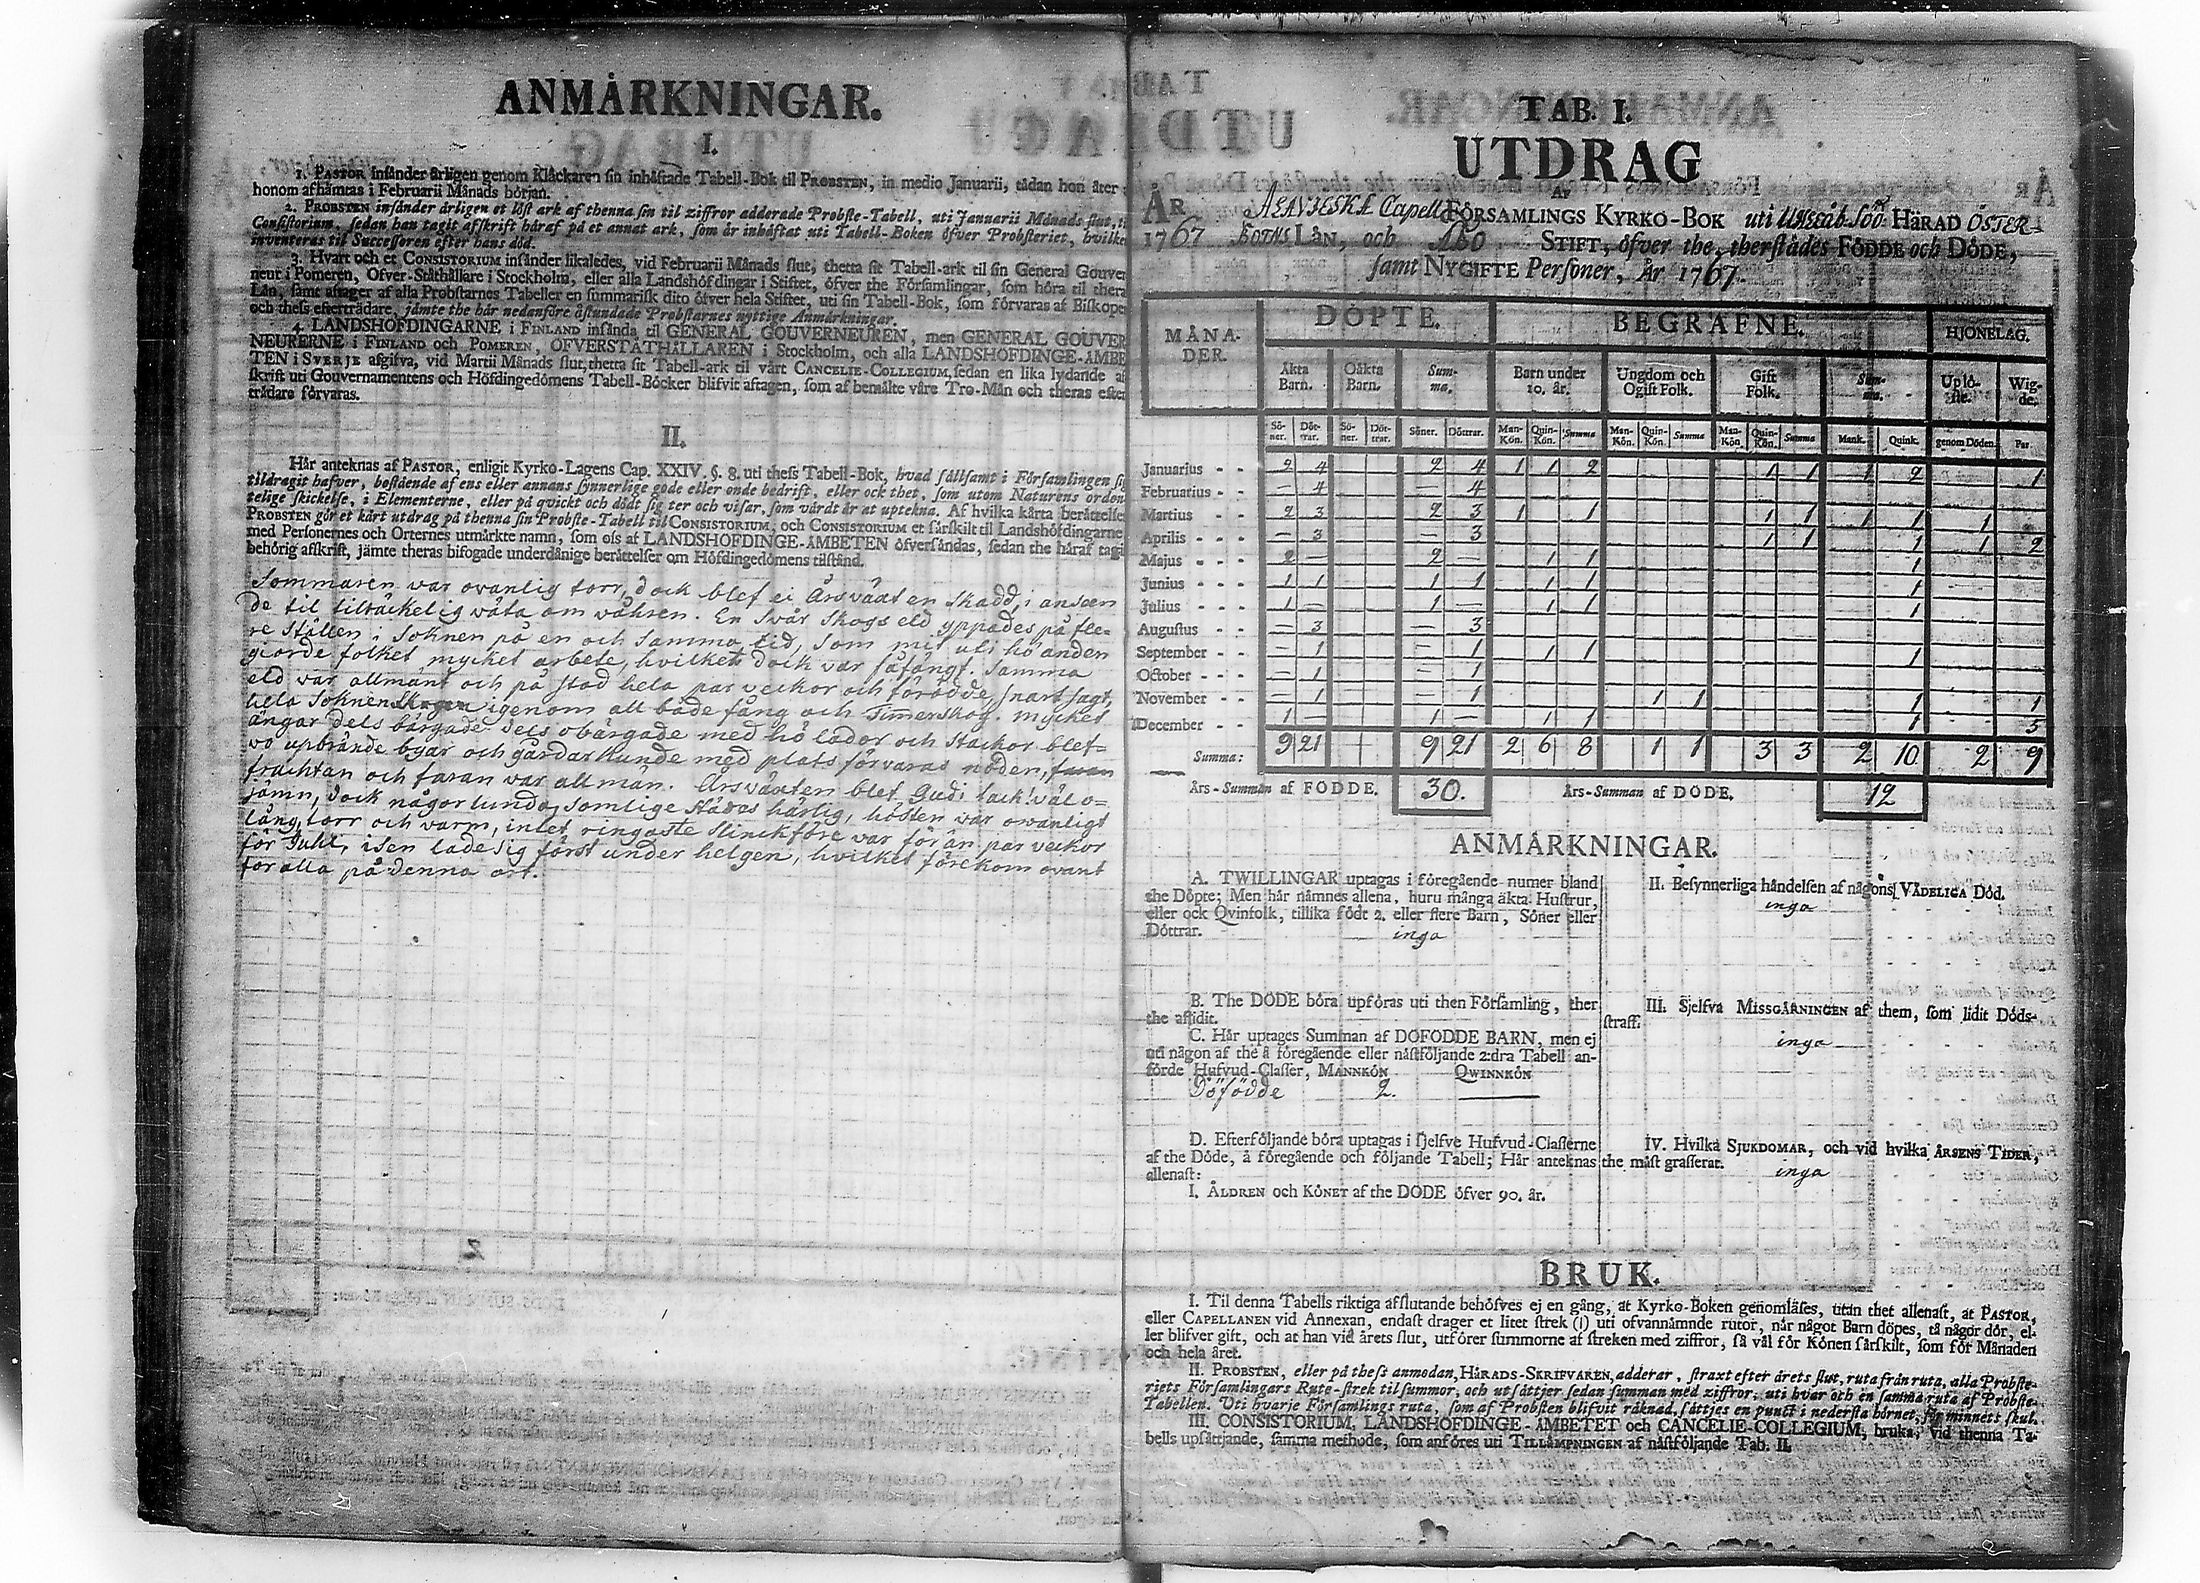 ANMÅRKNINGAR.
I.
1. PASTOR insånder årligen genom Klåckaren sin inhåftade Tabell-Bok til PROBSTEN, in medio Januarii, tådan hon åter
honom afhåmtas i Februarii Månads början.
2. PROBSTEN insånder årligen et löst ark af thenna sin til ziffror adderade Probste-Tabell, uti Januarii Månads slut, til
Consistorium, sedan han tagit afskrift håraf på et annat ark, som år inhåftat uti Tabell-Boken öfver Probsteriet, hvilke
inventeras til Successoren efter hans död.
3. Hvart och et CONSISTORIUM insånder likaledes, vid Februarii Månads slut, thetta sit Tabell-ark til sin General Gouver
neur i Pomeren, Ofver-Ståthållare i Stockholm, eller alla Landshöfdingar i Stiftet, öfver the Församlingar, som höra til thera
Lån, samt aftager af alla Probstarnes Tabeller en summarisk dito öfver hela Stiftet, uti sin Tabell-Bok, som förvaras af Biskope
och thess efterträdare, jämte the hår nedanföre åstundade Probstarnes nyttige Anmårkningar.
4. LANDSHOFDINGARNE i FINLAND insånda til GENERAL GOUVERNEUREN, men GENERAL GOUVER
NEURERNE i FINLAND och POMEREN, OFVERSTÅTHÅLLAREN i Stockholm, och alla LANDSHOFDINGE-AMBE
TEN i SVERJE afgifva, vid Martii Månads slut, thetta sit Tabell-ark til vårt CANCELIE-COLLEGIUM, sedan en lika lydande af
skrift uti Gouvernamentens och Höfdingedömens Tabell-Böcker blifvit aftagen, som af bemålte våre Tro-Mån och theras efter
trådare förvaras.
II.
Hår anteknas af PASTOR, enligit Kyrko-Lagens Cap. XXIV. §. 8. uti thess Tabell-Bok, hvad sållsamt i Församlingen sig
tildragit hafver, bestående af ens eller annans synnerlige gode eller onde bedrift, eller ock thet, som utom Naturens orden
telige skickelse, i Elementerne, eller på qvickt och dödt sig ter och visar, som vårdt år at uptekna. Af hvilka kårta beråttelse
PROBSTEN gör et kårt utdrag på thenna sin Probste-Tabell til CONSISTORIUM, och CONSISTORIUM et sårskilt til Landshöfdingarne
med Personernes och Orternes utmårkte namn, som oss af LANDSHOFDINGE-AMBETEN öfversåndas, sedan the håraf tagit
behörig afskrift, jåmte theras bifogade underdånige beråttelser om Höfdingedömens tilstånd.
Sommaren war ovanlig torr, dock blef ei Årsväxten skadd, i anseen
de til tilräckelig wäta om wåhren. En svår skogs eld yppades på fle-
re ställen i Soknen på en och samma tid, som mit uti hö anden
giorde folket mycket arbete, hvilket dock var fåfängt. Samma
eld war allmänt och på stod hela par veckor och förödde, snart sagt,
hela Soknen igenom all både fång och Timerskog. mycket
ängar dels bärgade dels obärgade med hö lador och stackor blef-
vo upbrände byar och gårdar kunde med plats förvaras nöden,
fruchtan och faran war allmän. Årsväxten blef Gudi tack! väl o-
jämn, dock någorlunda, somlige städes härlig, hösten war owanligt
lång, torr och varm, intet ringaste slinckföre var för än par veckor
för Juhl, isen lade sig först under helgen, hvilket förekom ovant
för alla på denna ort.
TAB. I.
UTDRAG
AF
ÅR ALAVIESKA Capell FÖRSAMLINGS KYRKO-BOK uti HÄRAD ÖSTER-
1767 BOTNS LÄN, och ÅBO STIFT, öfver the, therstådes FÖDDE och DÖDE,
samt NYGIFTE Personer, År 1767.
MÅNA-DER. DÖPTE. BEGRAFNE. HJONELAG.
Åkta Barn. Oåkta Barn. Sum-ma. Barn under 10. år. Ungdom och Ogift Folk. Gift Folk. Sum-ma. Uplö-ste. Wig-de.
Sö-ner. Döt-trar. Sö-ner. Döt-trar. Söner. Döttrar. Man-Kön. Quin-Kön. Summa Man-Kön. Quin-Kön. Summa Man-Kön. Quin-Kön. Summa Mank. Quink. genom Döden. Par.
Januarius - - 2 4 2 4 1 1 2 1 1 1 2 1
Februarius - - — 4 — 4
Martius - - - 2 3 2 3 1 1 1 1 1 1 1
Aprilis - - - — 3 — 3 1 1 1 1 2
Majus - - - 2 — 2 — 1 1 1
Junius - - - 1 1 1 1 1 1 1
Julius - - - 1 — 1 — 1 1 1
Augustus - - — 3 — 3
September - - — 1 — 1 1 1 1
October - - - — 1 — 1
November - - — 1 — 1 1 1 1 1
December - - 1 — 1 — 1 1 1 5
Summa: 9 21 9 21 2 6 8 1 1 3 3 2 10 2 9
Års-Summan af FÖDDE. 30. Års-Summan af DÖDE. 12
ANMÅRKNINGAR.
A. TWILLINGAR uptagas i föregående numer bland
the Döpte; Men hår nåmnes allena, huru många åkta Hustrur,
eller ock Qvinfolk, tillika födt 2. eller flere Barn, Söner eller
Döttrar.
inga
B. The DÖDE böra upföras uti then Församling, ther
the aflidit.
C. Hår uptages Summan af DÖFÖDDE BARN, men ej
uti någon af the å föregående eller nåstföljande 2:dra Tabell an-
förde Hufvud-Classer, MANNKÖN QWINNKÖN
Döfödde 2. —
D. Efterföljande böra uptagas i sjelfve Hufvud-Classerne
af the Döde, å föregående och följande Tabell; Hår anteknas
allenast:
I. ÅLDREN och KÖNET af the DÖDE öfver 90. år.
II. Besynnerliga håndelsen af någons VÅDELIGA Död.
inga
III. Sjelfva MISSGÅRNINGEN af them, som lidit Döds-
straff.
inga
IV. Hvilka SJUKDOMAR, och vid hvilka ÅRSENS TIDER,
the måst grasserat.
inga
BRUK.
I. Til denna Tabells riktiga afslutande behöfves ej en gång, at Kyrko-Boken genomlåses, utan thet allenast, at PASTOR,
eller CAPELLANEN vid Annexan, endast drager et litet strek (|) uti ofvannåmnde rutor, når något Barn döpes, tå någor dör, el-
ler blifver gift, och at han vid årets slut, utförer summorne af streken med ziffror, så väl för Könen sårskilt, som för Månaden
och hela året.
II. PROBSTEN, eller på thess anmodan, HÅRADS-SKRIFVAREN, adderar, straxt efter årets slut, ruta från ruta, alla Probste-
riets Församlingars Rute-strek til summor, och utsåttjer sedan summan med ziffror, uti hvar och en samma ruta af Probste-
Tabellen. Uti hvarje Församlings ruta, som af Probsten blifvit råknad, såttjes en punct i nedersta hörnet, för minnets skul.
III. CONSISTORIUM, LANDSHOFDINGE-AMBETET och CANCELIE-COLLEGIUM, bruka, vid thenna Ta-
bells upsåttjande, samma methode, som anföres uti TILLÅMPNINGEN af nåstföljande Tab. II.